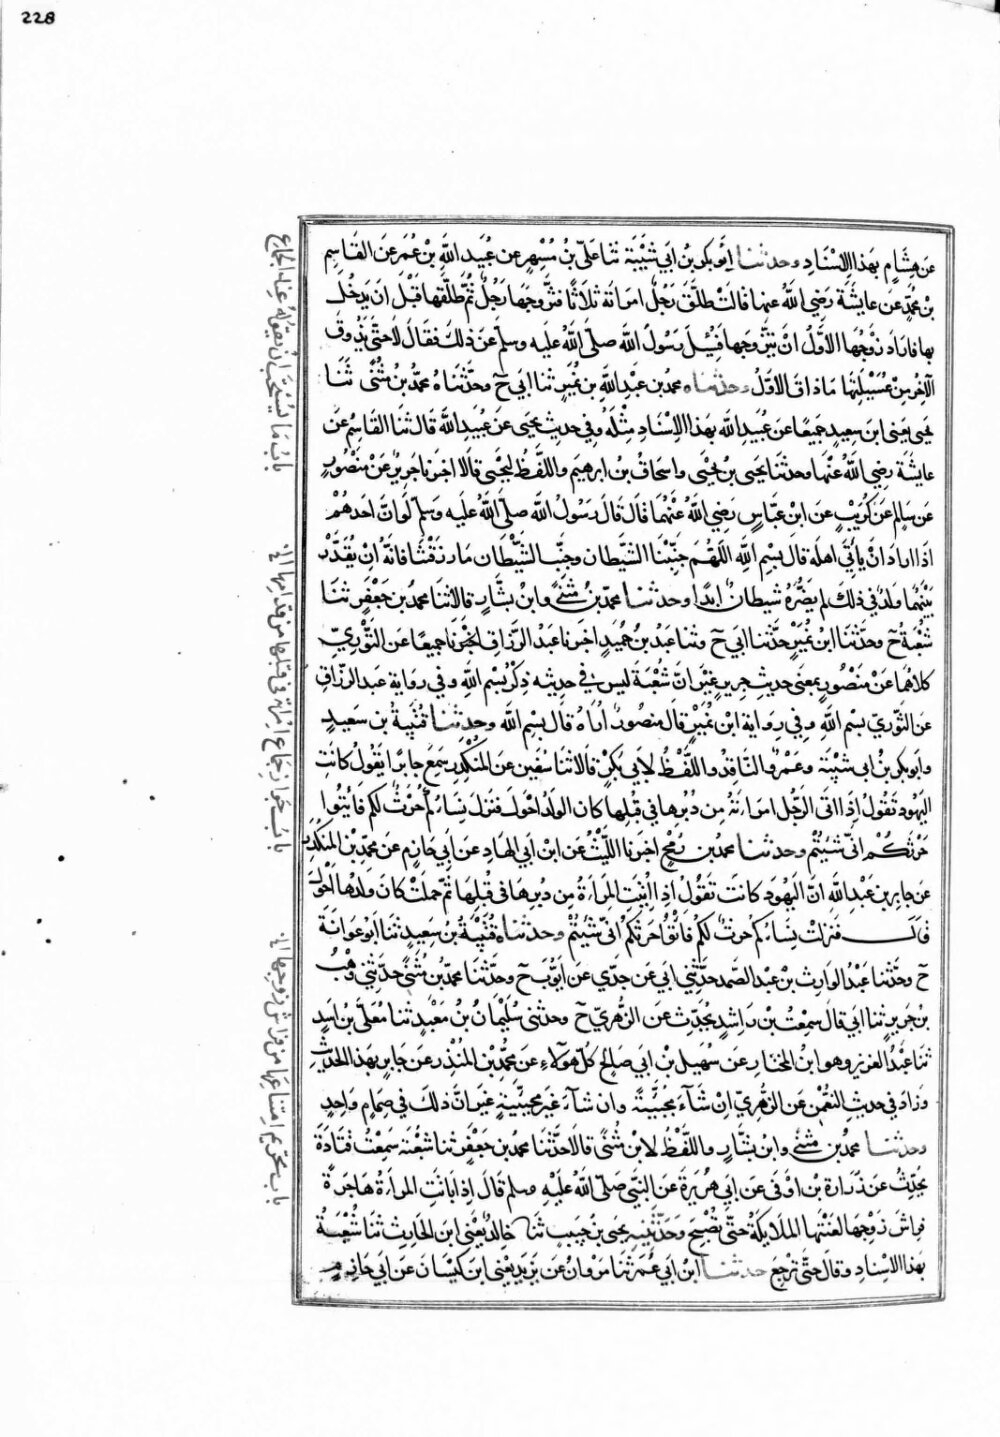 228
عن هشام بهذا الاسناد وحدثنا ابو بكر بن ابي شيبة ثنا علي بن مسهر عن عبيد الله بن عمر عن القاسم
بن محمد عن عايشة رضي الله عنها قالت طلق رجل امراته ثلاثا فتزوجها رجل ثم طلقها قبل ان يدخل
بها فاراد زوجها الاول ان يتزوجها فسيل رسول الله صلى الله عليه وسلم عن ذلك فقال لا حتى يذوق
الآخر من عسيلتها ما ذاق الاول وحدثناه محمد بن عبد الله بن نمير ثنا ابي ح وحدثناه محمد بن مثنى ثنا
يحيى يعني ابن سعيد جميعا عن عبيد الله بهذا الاسناد مثله وفي حديث يحيى عن عبيد الله قال ثنا القاسم عن
عايشة رضي الله عنها وحدثنا يحيى بن يحيى واسحاق بن ابرهيم واللفظ ليحيى قالا اخبرنا جرير عن منصور
عن سالم عن كريب عن ابن عباس رضي الله عنهما قال قال رسول الله صلى الله عليه وسلم لو ان احدهم
اذا اراد ان يأتي اهله قال بسم الله اللهم جنبنا الشيطان وجنب الشيطان ما رزقتنا فانه ان يقدر
بينهما ولد في ذلك لم يضره شيطان ابدا وحدثنا محمد بن مثنى وابن بشار قالا ثنا محمد بن جعفر ثنا
شعبة ح وحدثنا ابن نمير حدثنا ابي ح وثنا عبد بن حميد اخبرنا عبد الرزاق اخبرنا جميعا عن الثوري
كلاهما عن منصور بمعنى حديث جرير غير ان شعبة ليس في حديثه ذكر بسم الله وفي رواية عبد الرزاق
عن الثوري بسم الله وفي رواية ابن نمير قال منصور اراه قال بسم الله وحدثنا قتيبة بن سعيد
وابو بكر بن ابي شيبة وعمرو الناقد واللفظ لابي بكر قالا ثنا سفين عن المنكدر سمع جابرا يقول كانت
اليهود تقول اذا اتى الرجل امراته من دبرها في قبلها كان الولد احول فنزل نساءكم حرث لكم فأتوا
حرثكم انى شئتم وحدثنا محمد بن رمح اخبرنا الليث عن ابن ابي الهاد عن ابي حازم عن محمد بن المنكدر
عن جابر بن عبد الله ان اليهود كانت تقول اذا اتيت المراة من دبرها في قبلها ثم حملت كان ولدها احول
قال فنزلت نساءكم حرث لكم فأتوا حرثكم انى شئتم وحدثناه قتيبة بن سعيد ثنا ابو عوانة
ح وحدثنا عبد الوارث بن عبد الصمد حدثني ابي عن جدي عن ايوب ح وحدثنا محمد بن مثنى حدثني وهب
بن جرير ثنا ابي قال سمعت بن راشد يحدث عن الزهري ح وحدثني سليمان بن معبد ثنا معلى بن اسد
ثنا عبد العزيز وهو ابن المختار عن سهيل بن ابي صالح كل هولاء عن محمد بن المنذر عن جابر بهذا الحديث
وزاد في حديث النعمن عن الزهري ان شاء مجبية وان شاء غير مجبية غير ان ذلك في صمام واحد
وحدثنا محمد بن مثنى وابن بشار واللفظ لابن مثنى قالا حدثنا محمد بن جعفر ثنا شعبة سمعت قتادة
يحدث عن زرارة بن اوفى عن ابي هريرة عن النبي صلى الله عليه وسلم قال اذا باتت المراة هاجرة
فراش زوجها لعنتها الملايكة حتى تصبح وحدثنيه يحيى بن حبيب ثنا خالد يعني ابن الحارث ثنا شعبة
بهذا الاسناد وقال حتى ترجع حدثنا ابن ابي عمر ثنا مروان عن يزيد يعني ابن كيسان عن ابي حازم
باب ما يستحب ان يقوله عند الجماع
باب جواز جماع امراته في قبلها من قدامها الخ
باب تحريم امتناعها من فراش زوجها الخ